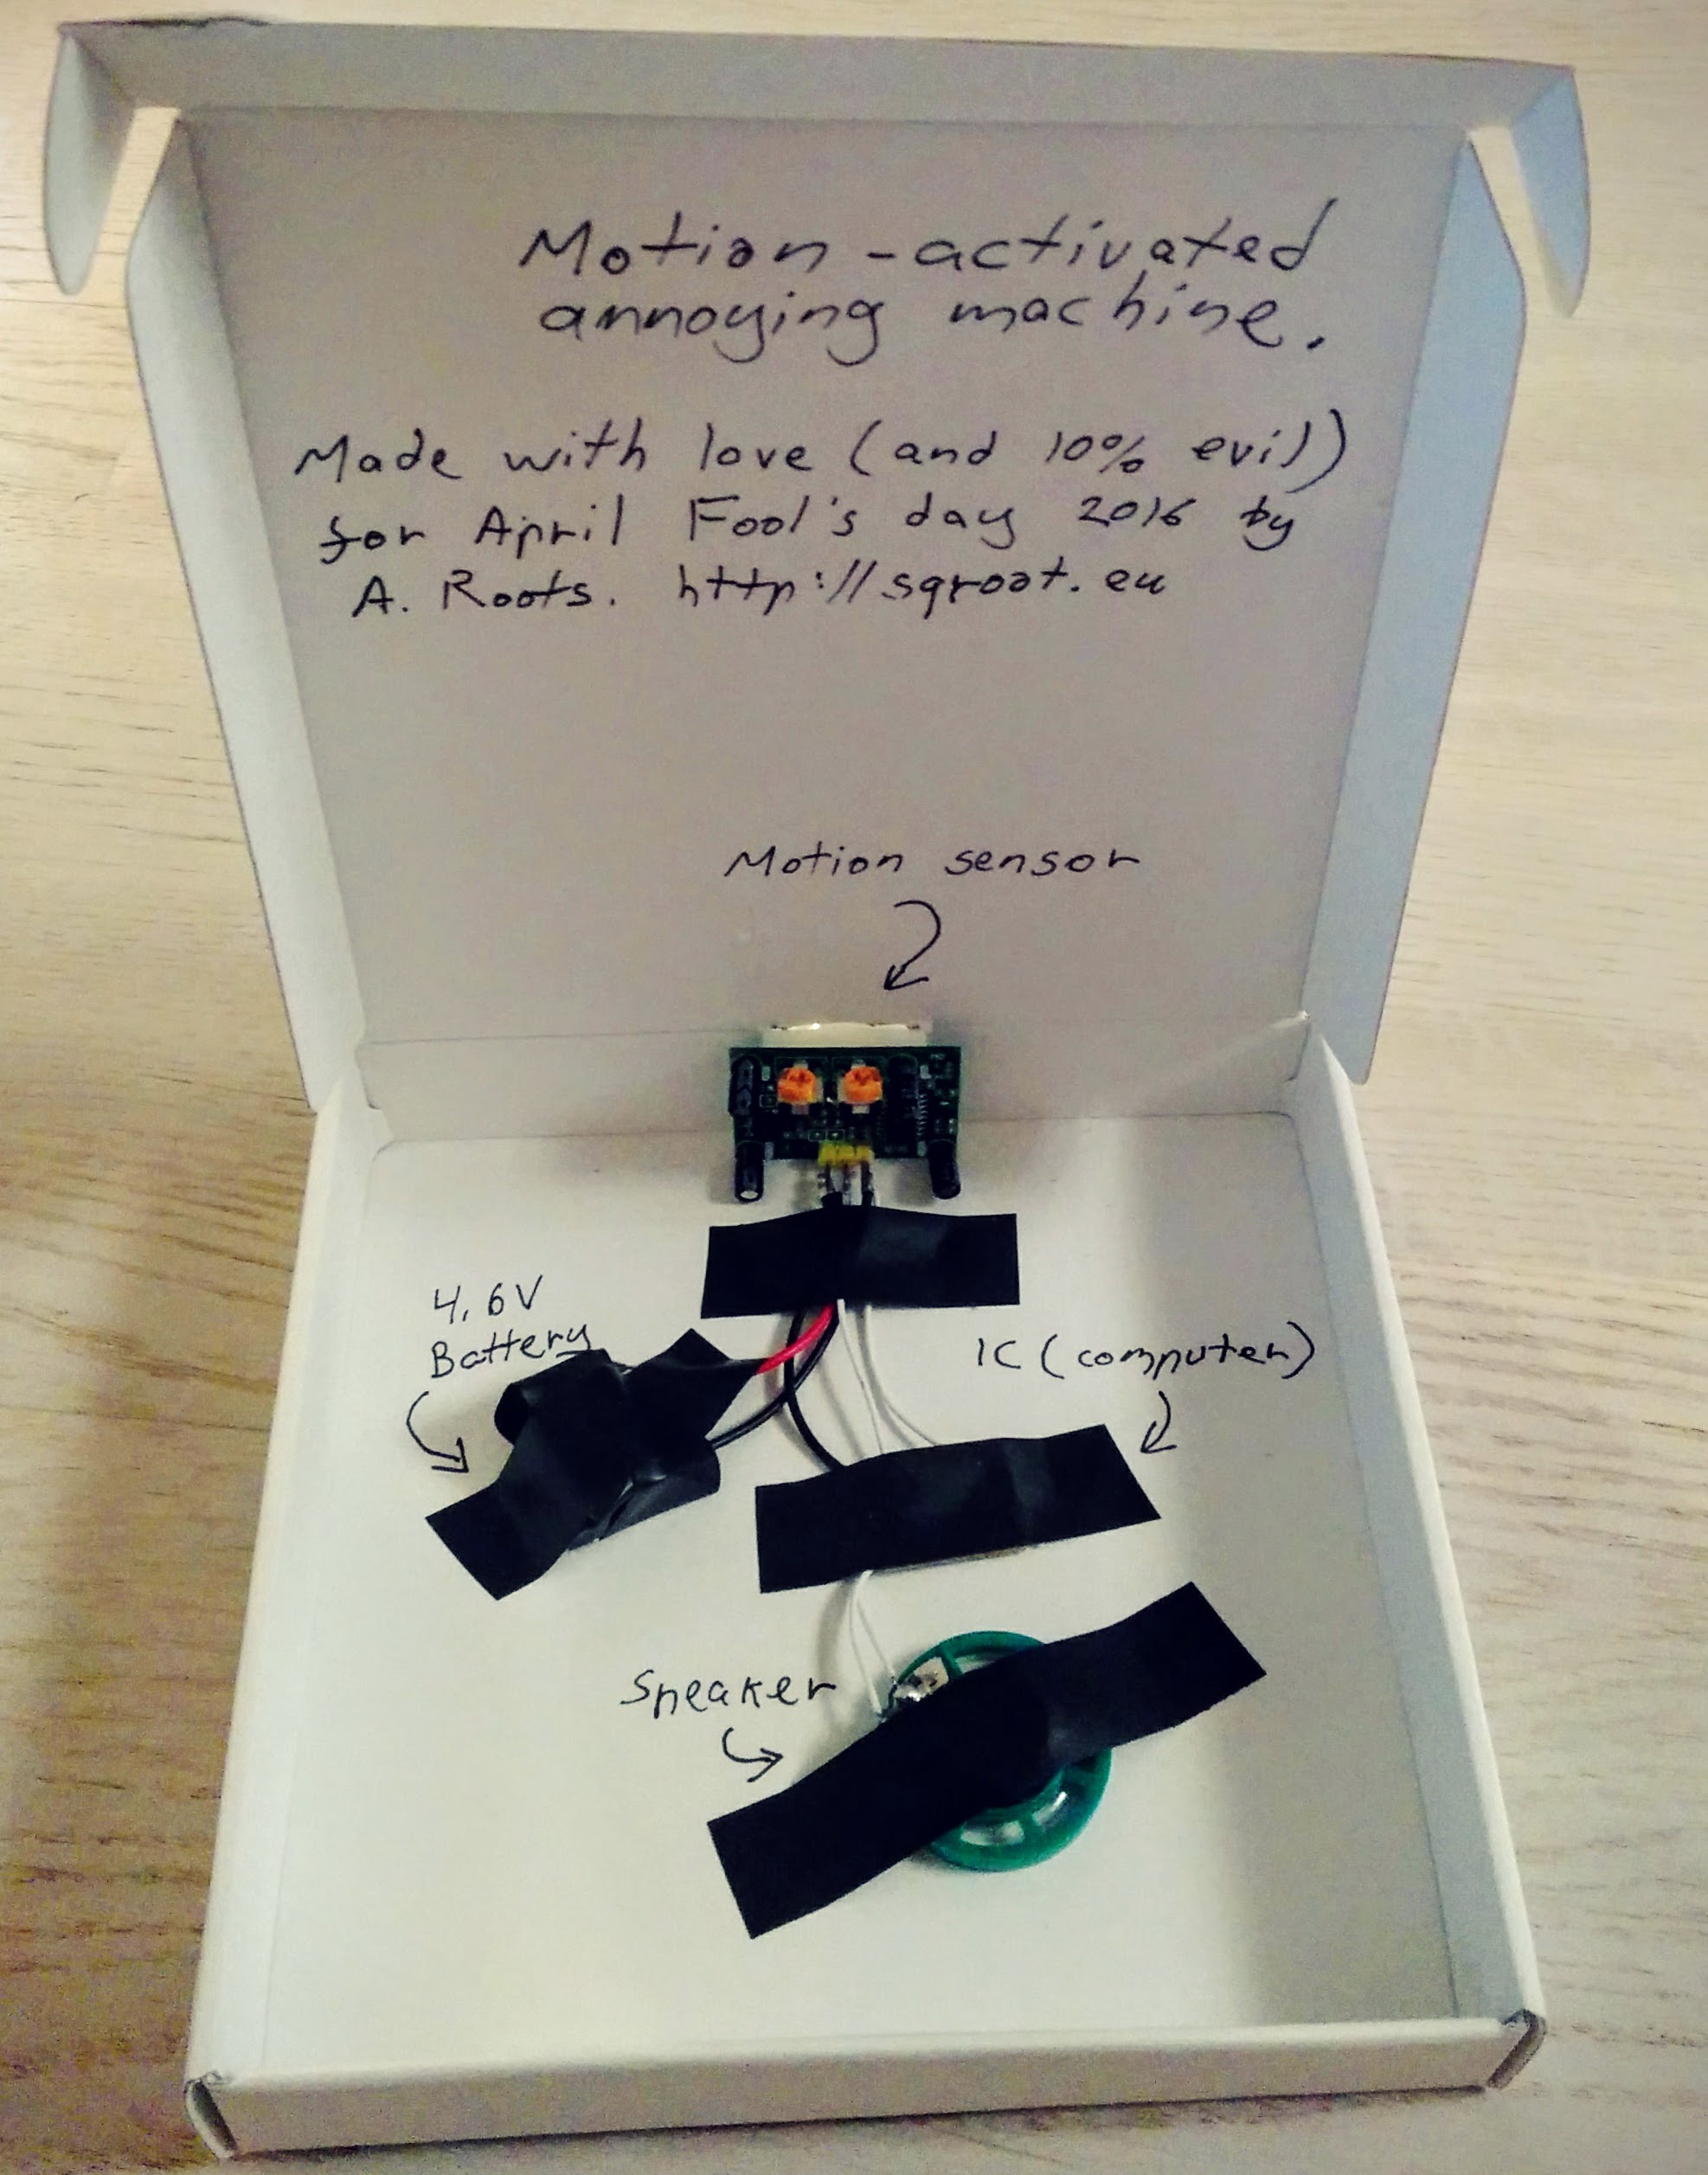 Motion-activated
annoying machine.
Made with love (and 10% evil)
for April Fool's day 2016 by
A. Roots. http://sqroot.eu
Motion sensor
4.6V
Battery
IC (computer)
Speaker